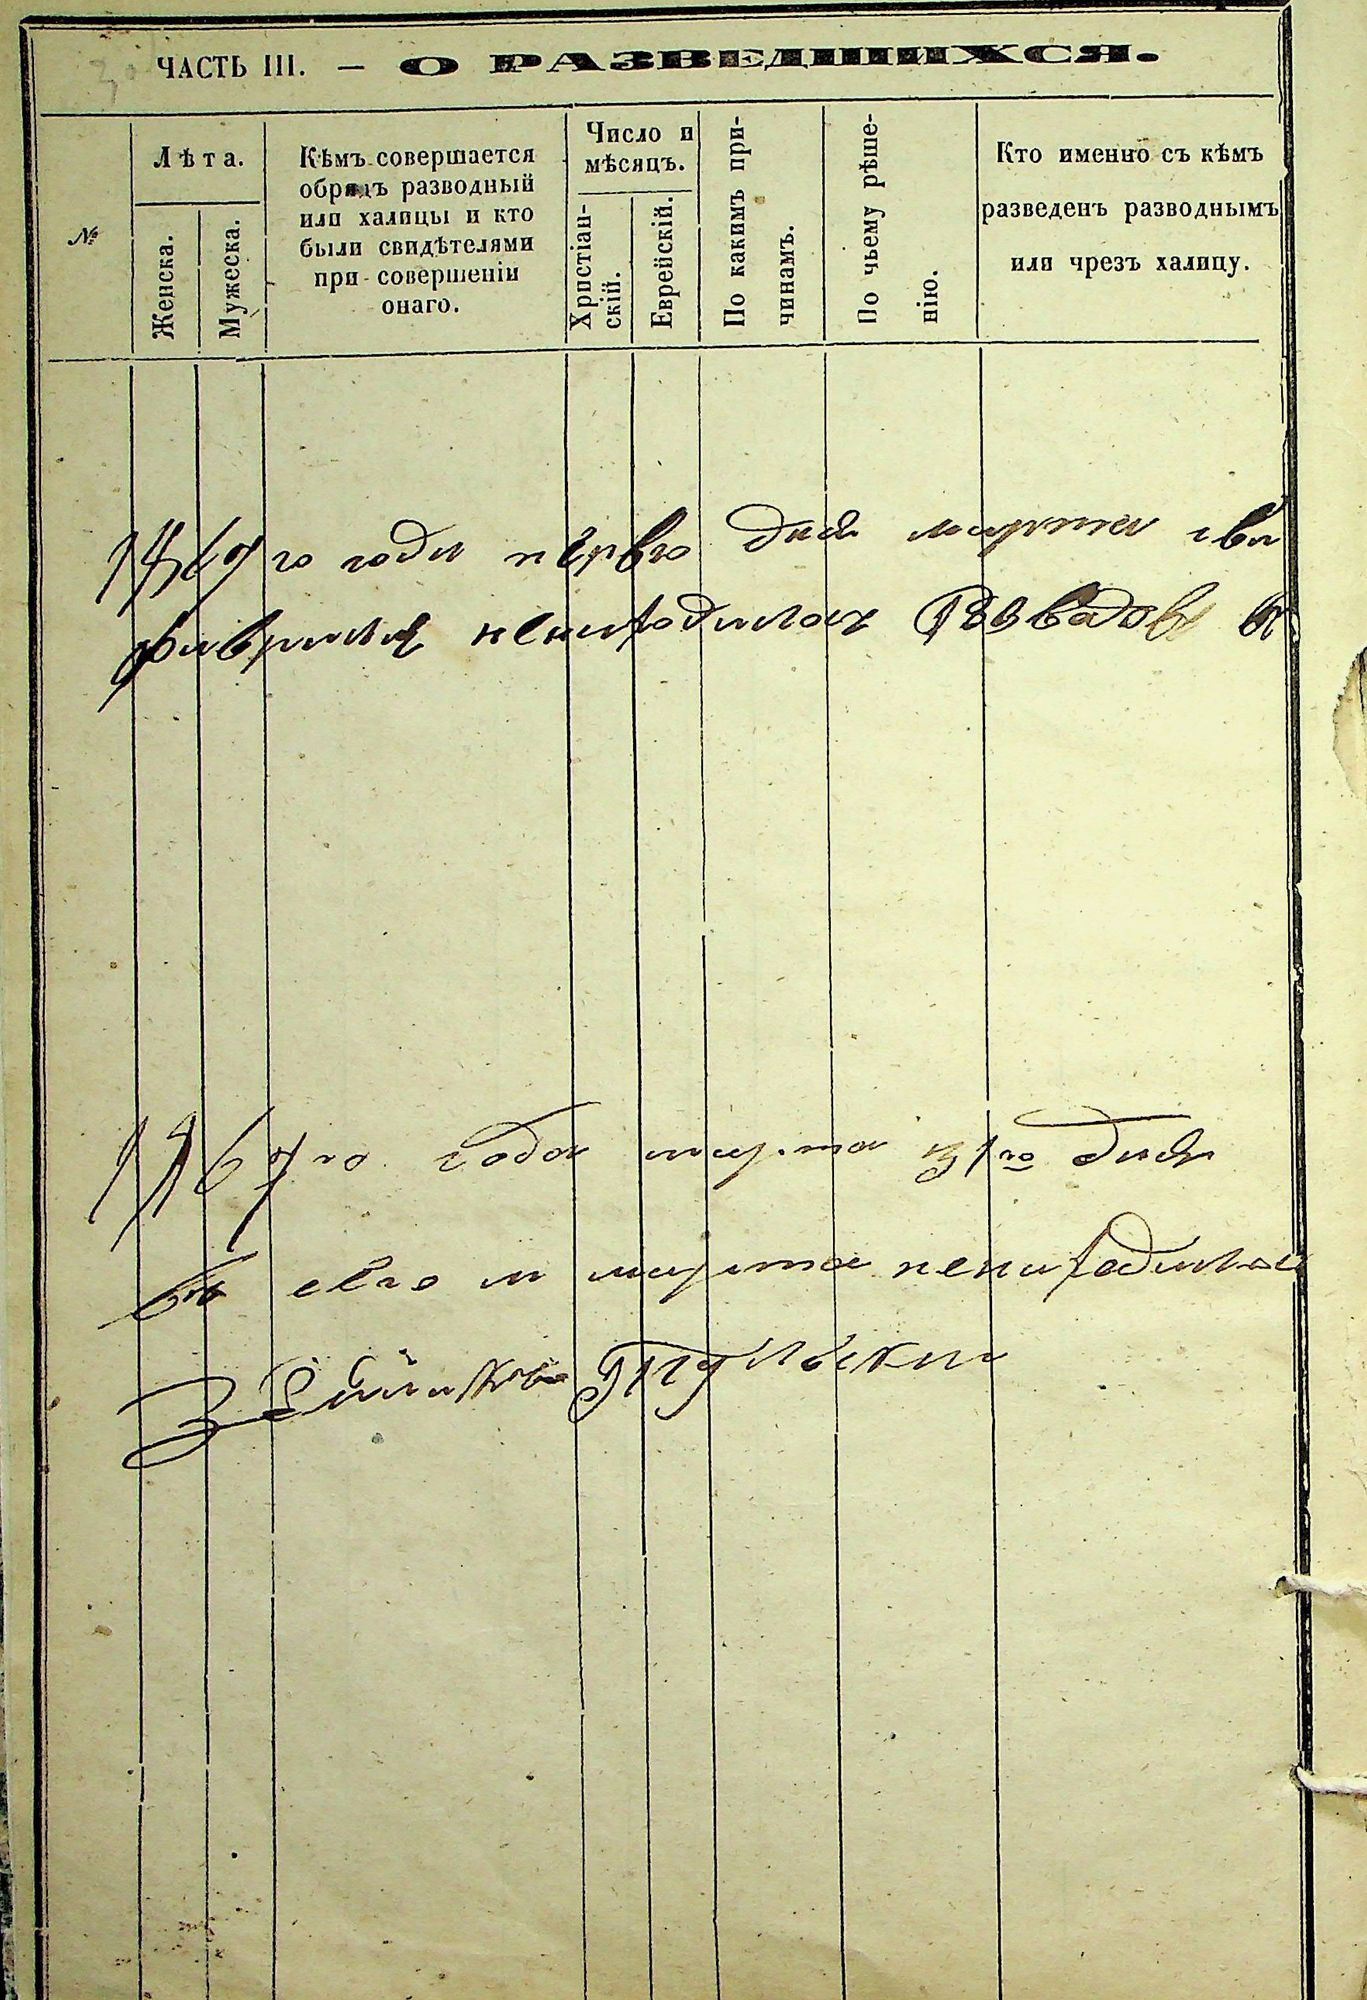 ЧАСТЬ III. — О РАЗВЕДШИХСЯ.
№
Лѣта.
Женска.
Мужеска.
Кѣмъ совершается
обрядъ разводный
или халицы и кто
были свидѣтелями
при совершеніи
онаго.
Число и
мѣсяцъ.
Христіан-
скій.
Еврейскій.
По какимъ при-
чинамъ.
По чьему рѣше-
нію.
Кто именно съ кѣмъ
разведенъ разводнымъ
или чрезъ халицу.
1867го года перво дня марта
февраля ненаходилось
1867го года марта 31го дня
въ сего м марта ненаходилось